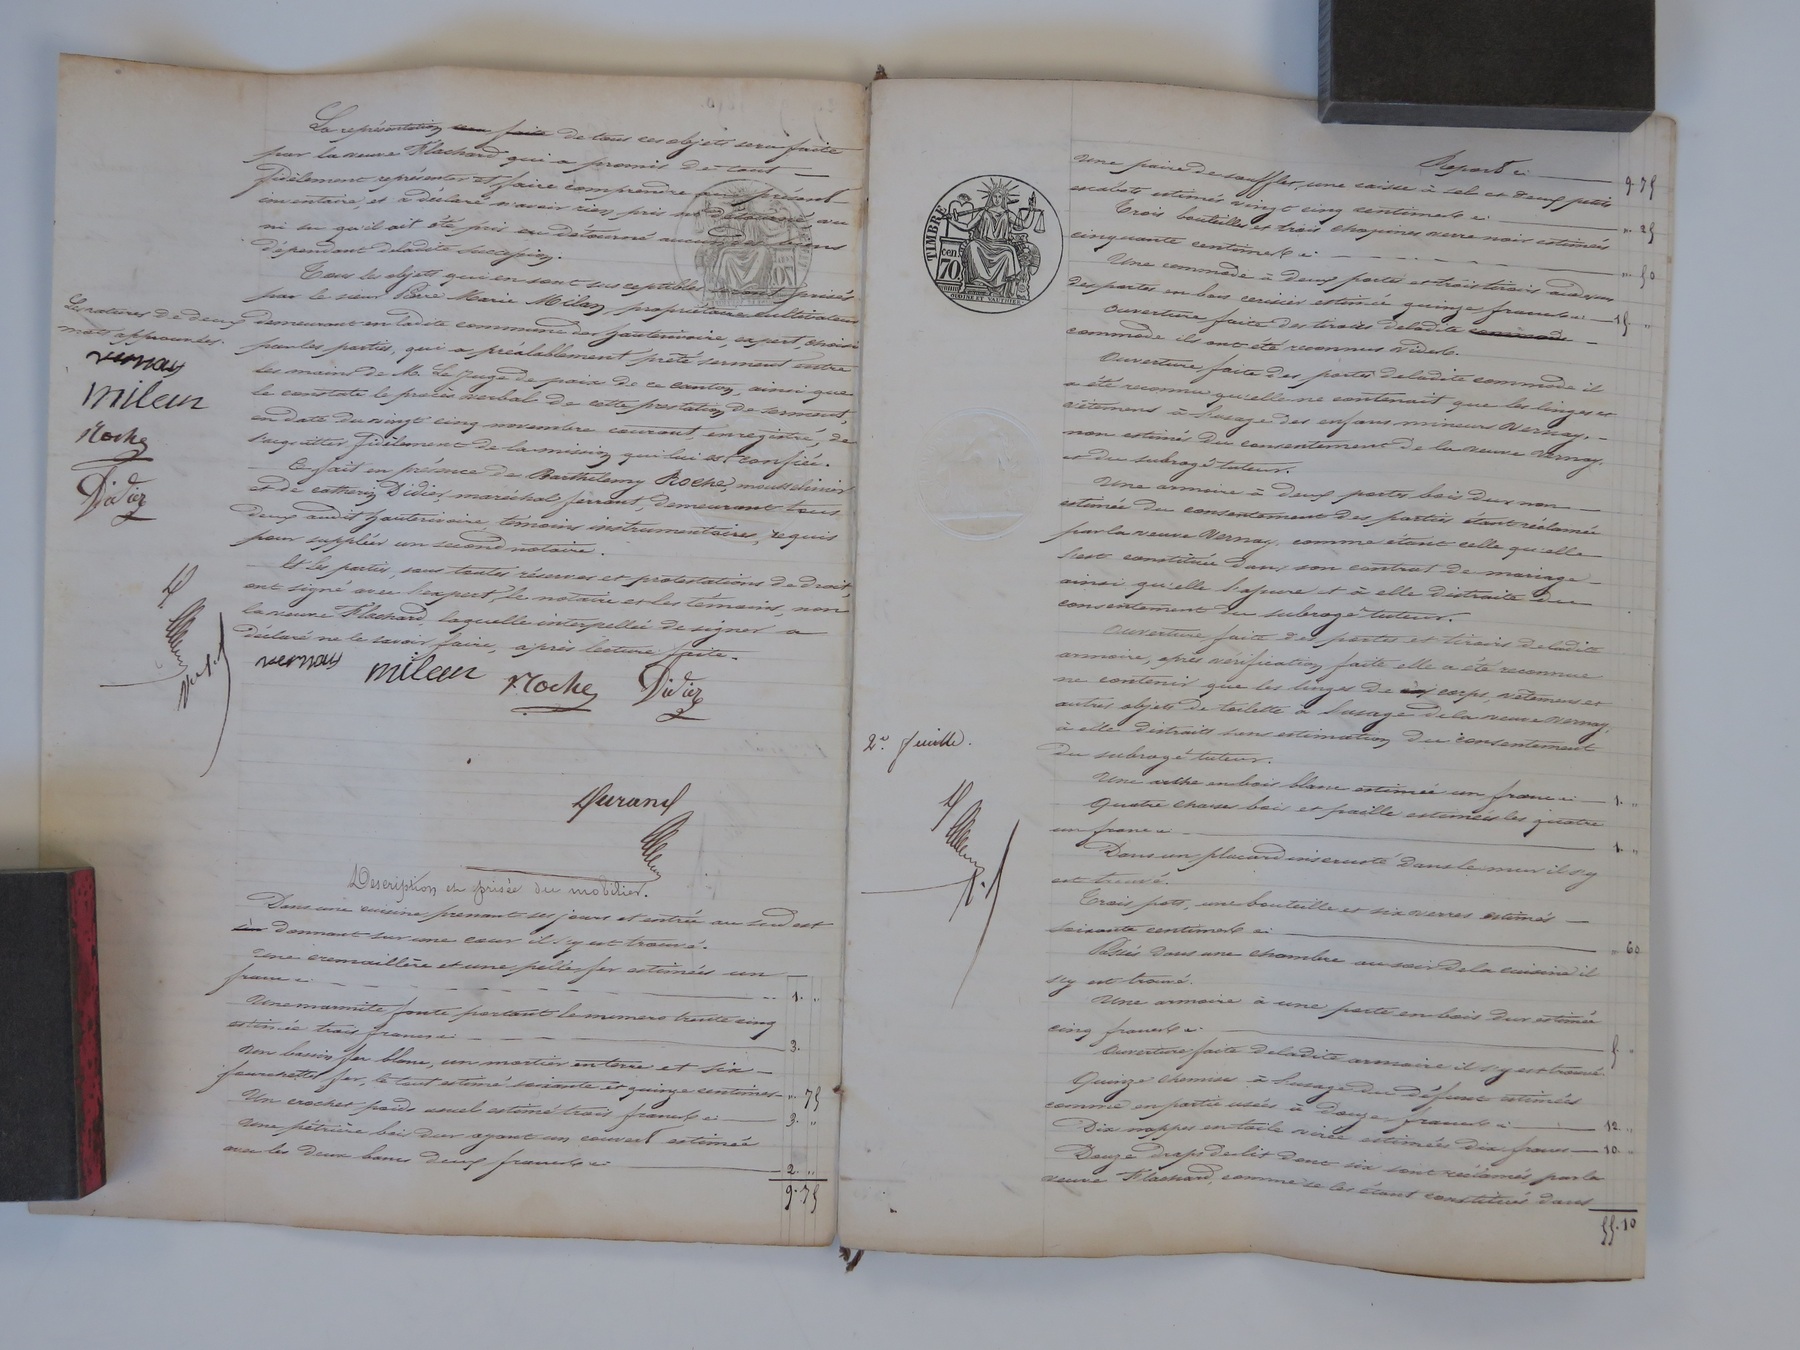 La représentation ~~sera faite~~ de tous ces objets sera faite
par la veuve Flachard qui a promis de tout
fidèlement représenter et faire comprendre au présent
inventaire, et a déclaré n'avoir rien pris ni détourné, vu
ni su qu'il ait été pris ou détourné aucun des biens
dépendant de ladite succession.
Tous les objets qui en sont susceptibles seront prisés
par le sieur Pierre Marie Milan, propriétaire cultivateur
demeurant en ladite commune de hauterivoire, expert choisi
par les parties, qui a préalablement prêté serment entre
les mains de Mr. le Juge de paix de ce canton, ainsi que
le constate le procès verbal de cette prestation de serment,
en date du vingt cinq novembre courant, enregistré, de
s'acquitter fidèlement de la mission qui lui est confiée.
Ce fait en présence de Barthélemy Roche, mousselinier
et de Didier, maréchal ferrant, demeurant tous
deux audit hauterivoire, témoins instrumentaires, requis
pour suppléer un second notaire.
Et les parties, sous toutes réserves et protestations de droit,
ont signé avec l'expert, le notaire et les témoins, non
la veuve Flachard, laquelle interpellée de signer a
déclaré ne le savoir faire, après lecture faite.
vernay milan Roche Didier
Durand
Les ratures de deux
mots approuvées.
vernay
milan
Roche
Didier
Description et prisée du mobilier.
Dans une cuisine prenant ses jours et entrée au sud est
donnant sur une cour il s'y est trouvé.
Une cremaillère et une pelle fer estimées un
franc ci 1. "
Une marmite fonte portant le numero trente cinq
estimée trois francs ci 3.
Un bassin fer blanc, un mortier en terre et six
fourchettes fer, le tout estimé soixante et quinze centimes " 75
Un crochet poids usuel estimé trois francs ci 3. "
Une pétrière bois dur ayant un couvert estimée
avec les deux bancs deux francs ci 2. "
9.75
Report ci 9.75
Une paire de soufflet, une caisse à sel et deux petits
estimés vingt cinq centimes ci " 25
Trois bouteilles et trois chopines verre noir estimés
cinquante centimes ci " 50
Une commode à deux portes et trois tiroirs audessus
des portes en bois cerisier estimée quinze francs ci 15 "
Ouverture faite des tiroirs de ladite ~~commode~~
commode ils ont été reconnus vides.
Ouverture faite des portes de ladite commode il
a été reconnu qu'elle ne contenait que les linges et
vêtemens à l'usage des enfans mineurs Vernay,
non estimés du consentement de la veuve Vernay,
et du subrogé tuteur.
Une armoire à deux portes bois dur non
estimée du consentement des parties étant réclamée
par la veuve Vernay, comme étant celle qu'elle
s'est constituée dans son contrat de mariage
ainsi qu'elle l'assure et à elle distraite du
consentement du subrogé tuteur.
Ouverture faite des portes et tiroirs de ladite
armoire, après vérification faite elle a été reconnue
ne contenir que les linges de corps, vêtemens et
autres objets de toilette à l'usage de la veuve Vernay,
à elle distraits sans estimation du consentement
du subrogé tuteur.
Une arche en bois blanc estimée un franc ci 1. "
Quatre chaises bois et paille estimées les quatre
un franc ci 1. "
Dans un placard incrusté dans le mur il s'y
est trouvé.
Trois pots, une bouteille et six verres estimés
soixante centimes ci " 60
Passés dans une chambre au soir de la cuisine il
s'y est trouvé.
Une armoire à une porte en bois dur estimée
cinq francs ci 5. "
Ouverture faite de ladite armoire il s'y est trouvé
Quinze chemises à l'usage du défunt estimées
comme en partie usées à douze francs ci 12 "
Dix nappes en toile estimées dix francs 10 "
Douze draps de lit dont six sont réclamés par la
veuve Flachard, comme se les étant constitués dans
55.10
2e. feuille.
TIMBRE
70
cen